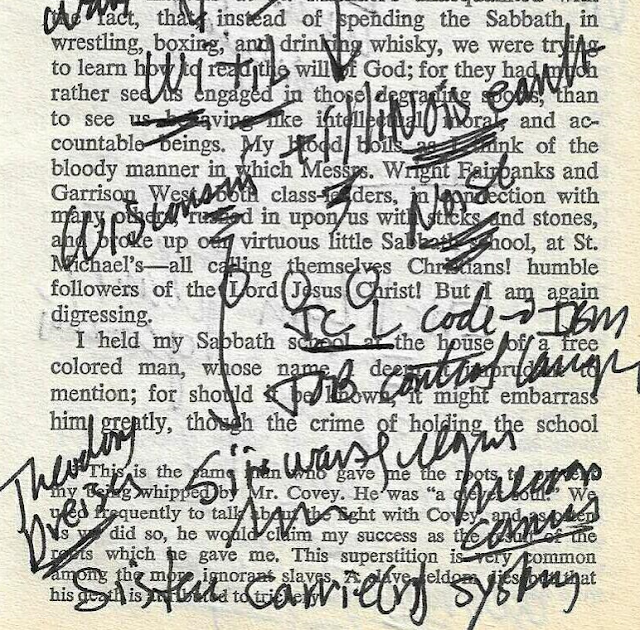 the fact, that, instead of spending the Sabbath in
wrestling, boxing, and drinking whisky, we were trying
to learn how to read the will of God; for they had much
rather see us engaged in those degrading sports, than
to see us behaving like intellectual, moral, and ac-
countable beings. My blood boils as I think of the
bloody manner in which Messrs. Wright Fairbanks and
Garrison West, both class-leaders, in connection with
many others, rushed in upon us with sticks and stones,
and broke up our virtuous little Sabbath school, at St.
Michael's—all calling themselves Christians! humble
followers of the Lord Jesus Christ! But I am again
digressing.
JCL code → IBM
I held my Sabbath school at the house of a free
colored man, whose name I deem it imprudent to
JOB control
mention; for should it be known, it might embarrass
him greatly, though the crime of holding the school
Theodore
Dreiser
This is the same man who gave me the roots to
my being whipped by Mr. Covey. He was "a clever soul." We
used frequently to talk about the fight with Covey, and as often
as we did so, he would claim my success as the result of the
roots which he gave me. This superstition is very common
among the more ignorant slaves. A slave seldom dies but that
his death is attributed to trickery.
Sister Carrie
Illinois
Wisconsin